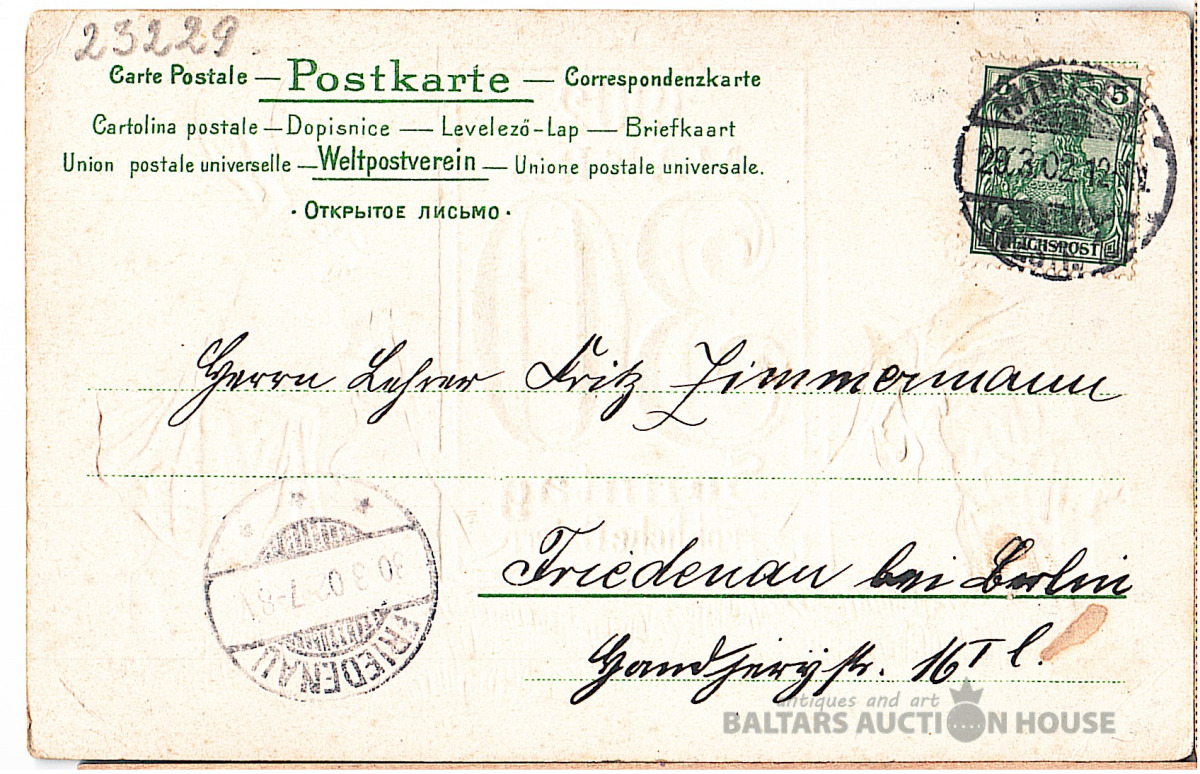 23229
Carte Postale — Postkarte — Correspondenzkarte
Cartolina postale — Dopisnice — Levelező-Lap — Briefkaart
Union postale universelle — Weltpostverein — Unione postale universale.
· ОТКРЫТОЕ ПИСЬМО ·
5 5
29.3.02. 12
REICHSPOST
Herrn Lehrer Fritz Zimmermann
30.3.02. 7-8
FRIEDENAU
Friedenau bei Berlin
Handjerystr. 16 I l.
antiques and art
BALTARS AUCTION HOUSE